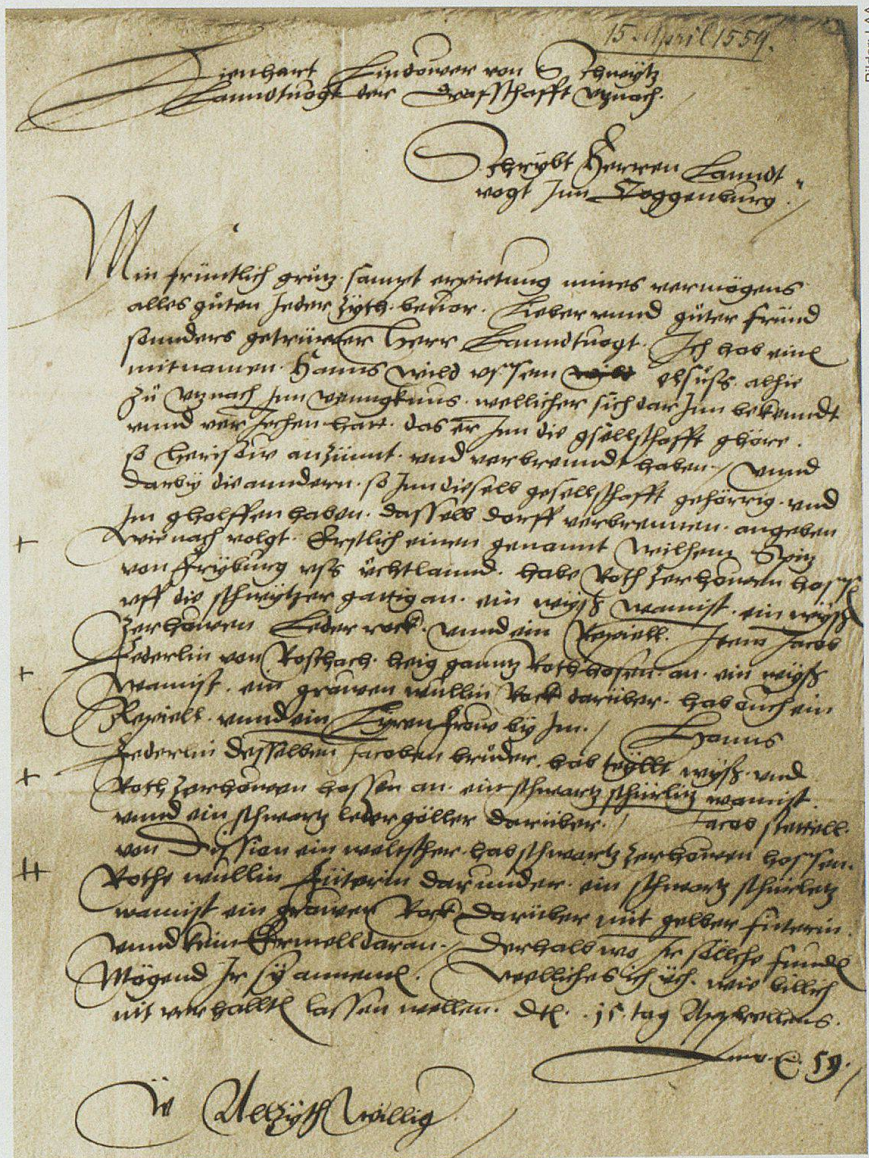 15. April 1559.
Lienhart Lindower von Schwytz
Lanndtuogt der Graffschafft Vznach.
Schrybt Herren Lanndt
vogt Jnn Doggenburg.
Min früntlich grůtz sampt erpietung mines vermögens
alles gůten Jeder Zyth beuor. Lieber vnnd gůter fründ
sonnders getrüwer Herr Lanndtuogt. Jch hab einen
mitnamen Hanns Wild vssem Elsůss alhie
Zů Vznach Jnn vennngknus. wellicher sich dar Jnn bekenndt
vnnd verJechen hatt. das er Jnn die gsellschafft ghöre.
so Herisow anZünnt. vnd verbrenndt haben. vnnd
darby die anndern. so Jnn dieselb gesellschafft gehörrig. vnd
Jm gholffen haben. dasselb dorff verbrennen. angeben
wie nach volgt. Erstlich einen genannt Wilhelm Spitz
von Fryburg vss üchtlannd. habe Roth Zerhouwen hossen
vff die schwytzer gattig an. ein wyss wamist. ein wyss
Zerhowen Leder rock. vnnd ein Rapiell. Jtem Jacob
Federlin von Roschach. heig gantz Roth hosen an. ein wyss
wamist. ein grawen wullin Rock darüber. hab ouch ein
Rapiell. vnnd ein Lyren frow by Jm. Hanns
Federlin desselben Jacoben brůder. hab teyllt wyss. vnd
Roth Zerhouwen hossen an. ein schwartz schürlitz wamist.
vnnd ein schwartz leder göller darüber. Jacob
von ein weltscher. hab schwartz Zerhouwen hossen.
Rothe wullin fůterin darunder. ein schwartz schürletz
wamist ein grawer Rock darüber mit gelber fůterin.
vnnd kein Ermell daran. Derhalb wo Jr söllche fundend
Mögend Jr sy annemen. Welliches ich üch. wie billich
nit verhallten lassen wellen. Dat. 15. tag Apprellens.
Anno &c. 59.
Üw Allzyth williger